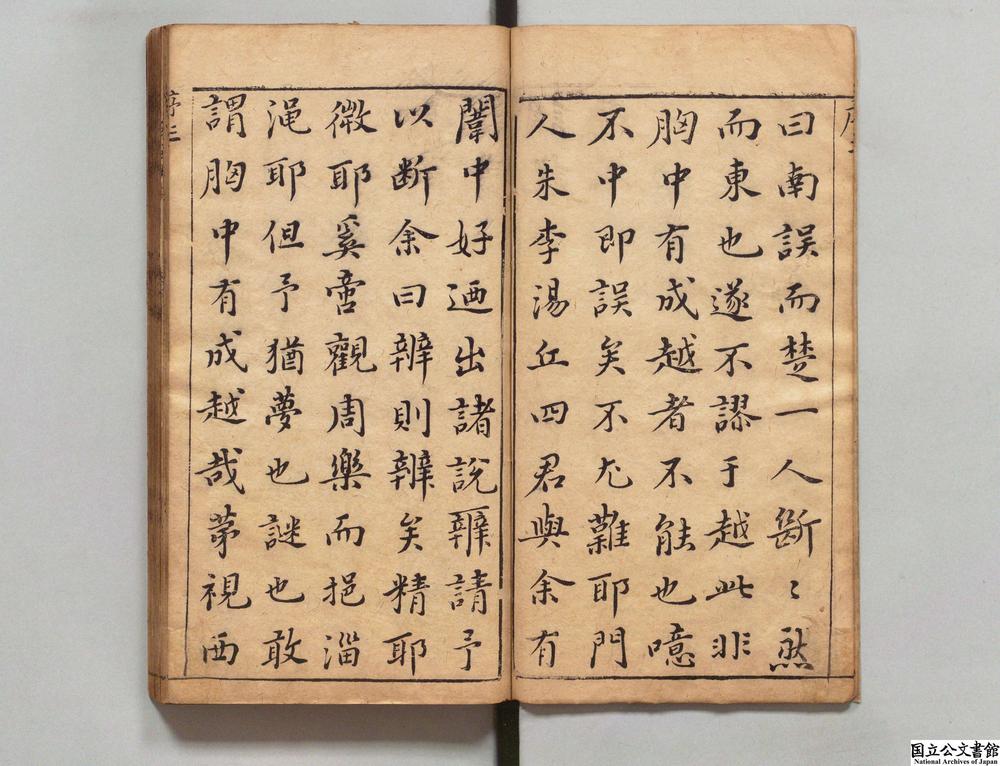 曰南誤而楚一人斷〻然
而東也遂不謬于越此非
胸中有成越者不能也噫
不中即誤矣不尤難耶門
人朱李湯丘四君與余有
闈中好迺出諸說辨請予
以断余曰辨則辨矣精耶
微耶奚啻觀周樂而挹淄
渑耶但予猶夢也謎也敢
謂胸中有成越哉第視西
序三
国立公文書館
National Archives of Japan